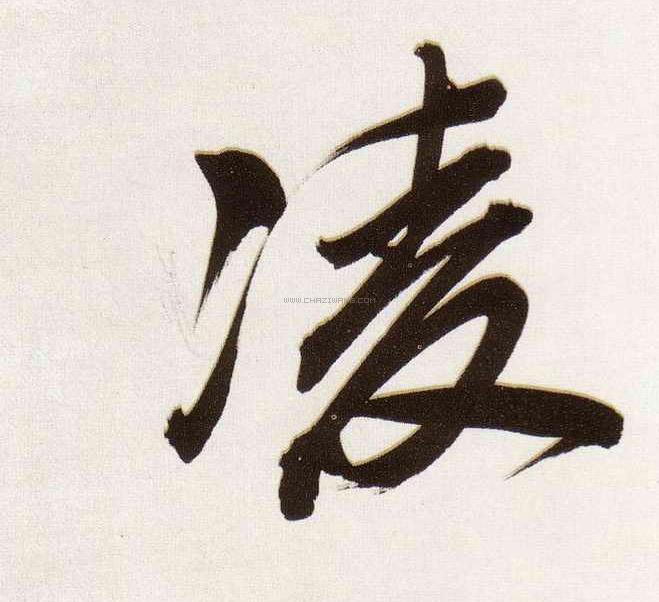 凌
WWW.CHAZIWANG.COM